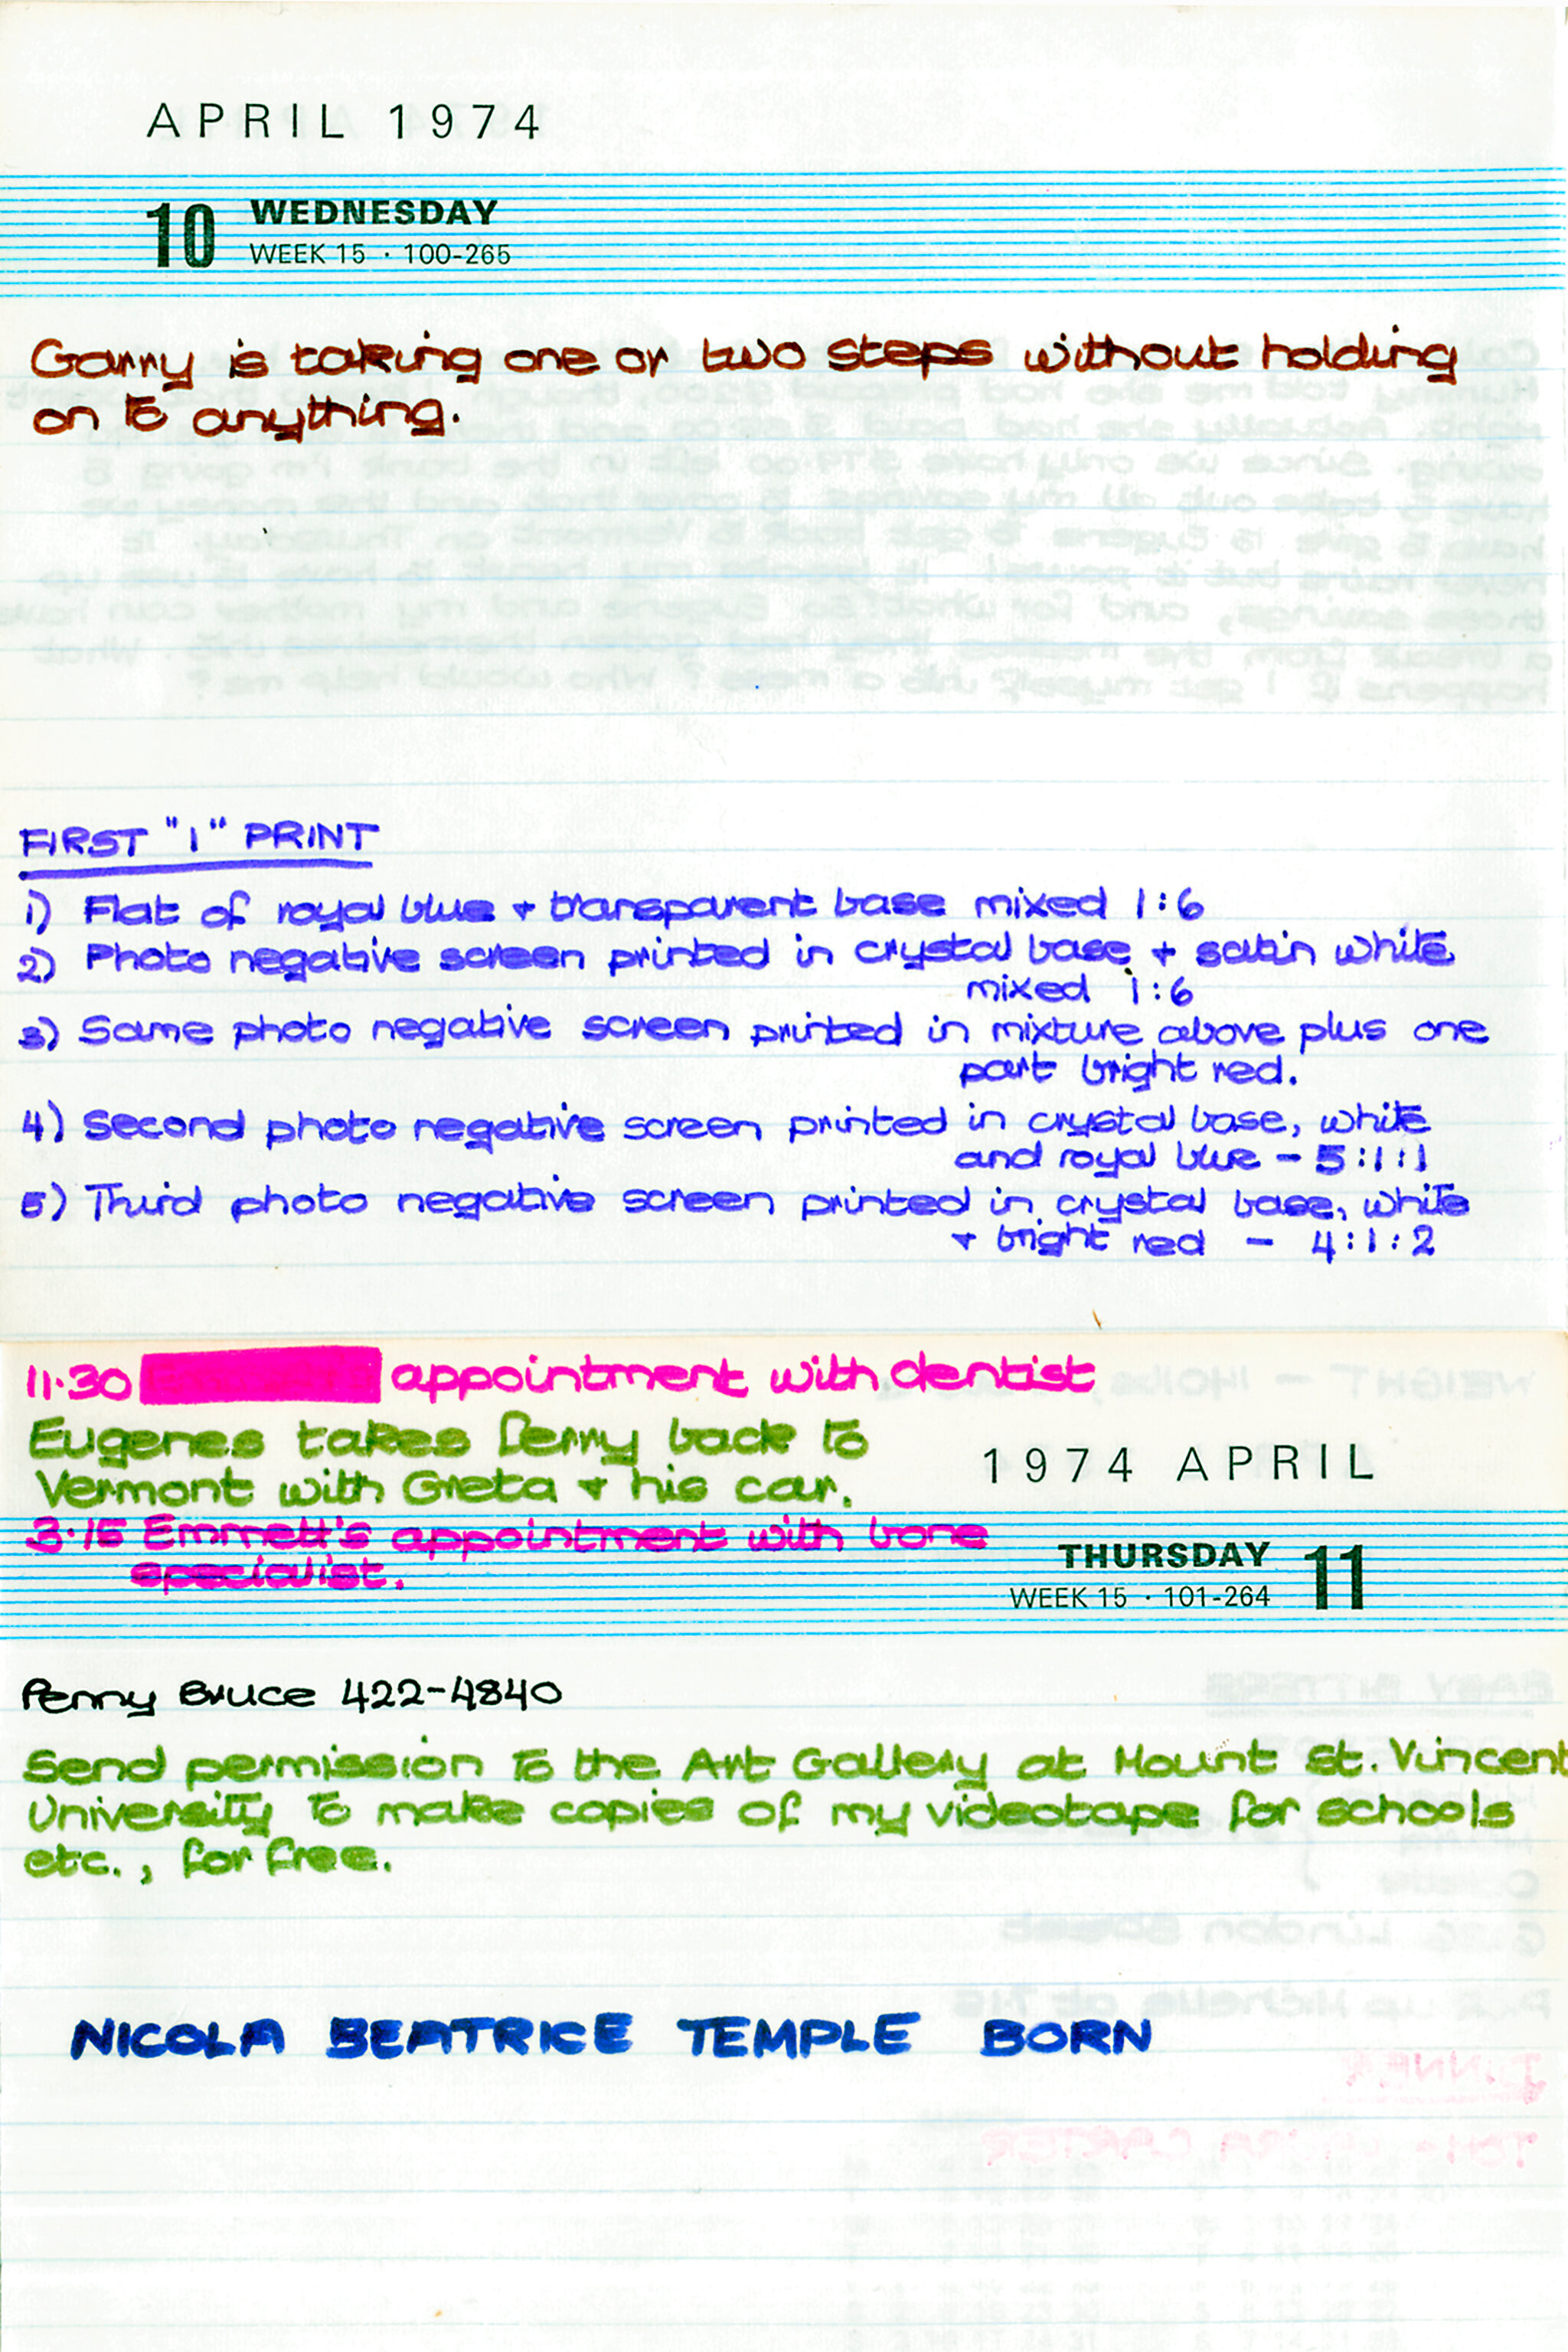 APRIL 1974
10 WEDNESDAY
WEEK 15 · 100-265
Garry is taking one or two steps without holding
on to anything.
FIRST "I" PRINT
1) Flat of royal blue + transparent base mixed 1:6
2) Photo negative screen printed in crystal base + satin white
mixed 1:6
3) Same photo negative screen printed in mixture above plus one
part bright red.
4) Second photo negative screen printed in crystal base, white
and royal blue - 5:1:1
5) Third photo negative screen printed in crystal base, white
+ bright red - 4:1:2
11.30 appointment with dentist
Eugenes takes Penny back to
Vermont with Greta + his car.
1974 APRIL
3.15 Emmett's appointment with bone
specialist.
THURSDAY 11
WEEK 15 · 101-264
Penny Bruce 422-4840
Send permission to the Art Gallery at Mount St. Vincent
University to make copies of my videotape for schools
etc., for free.
NICOLA BEATRICE TEMPLE BORN